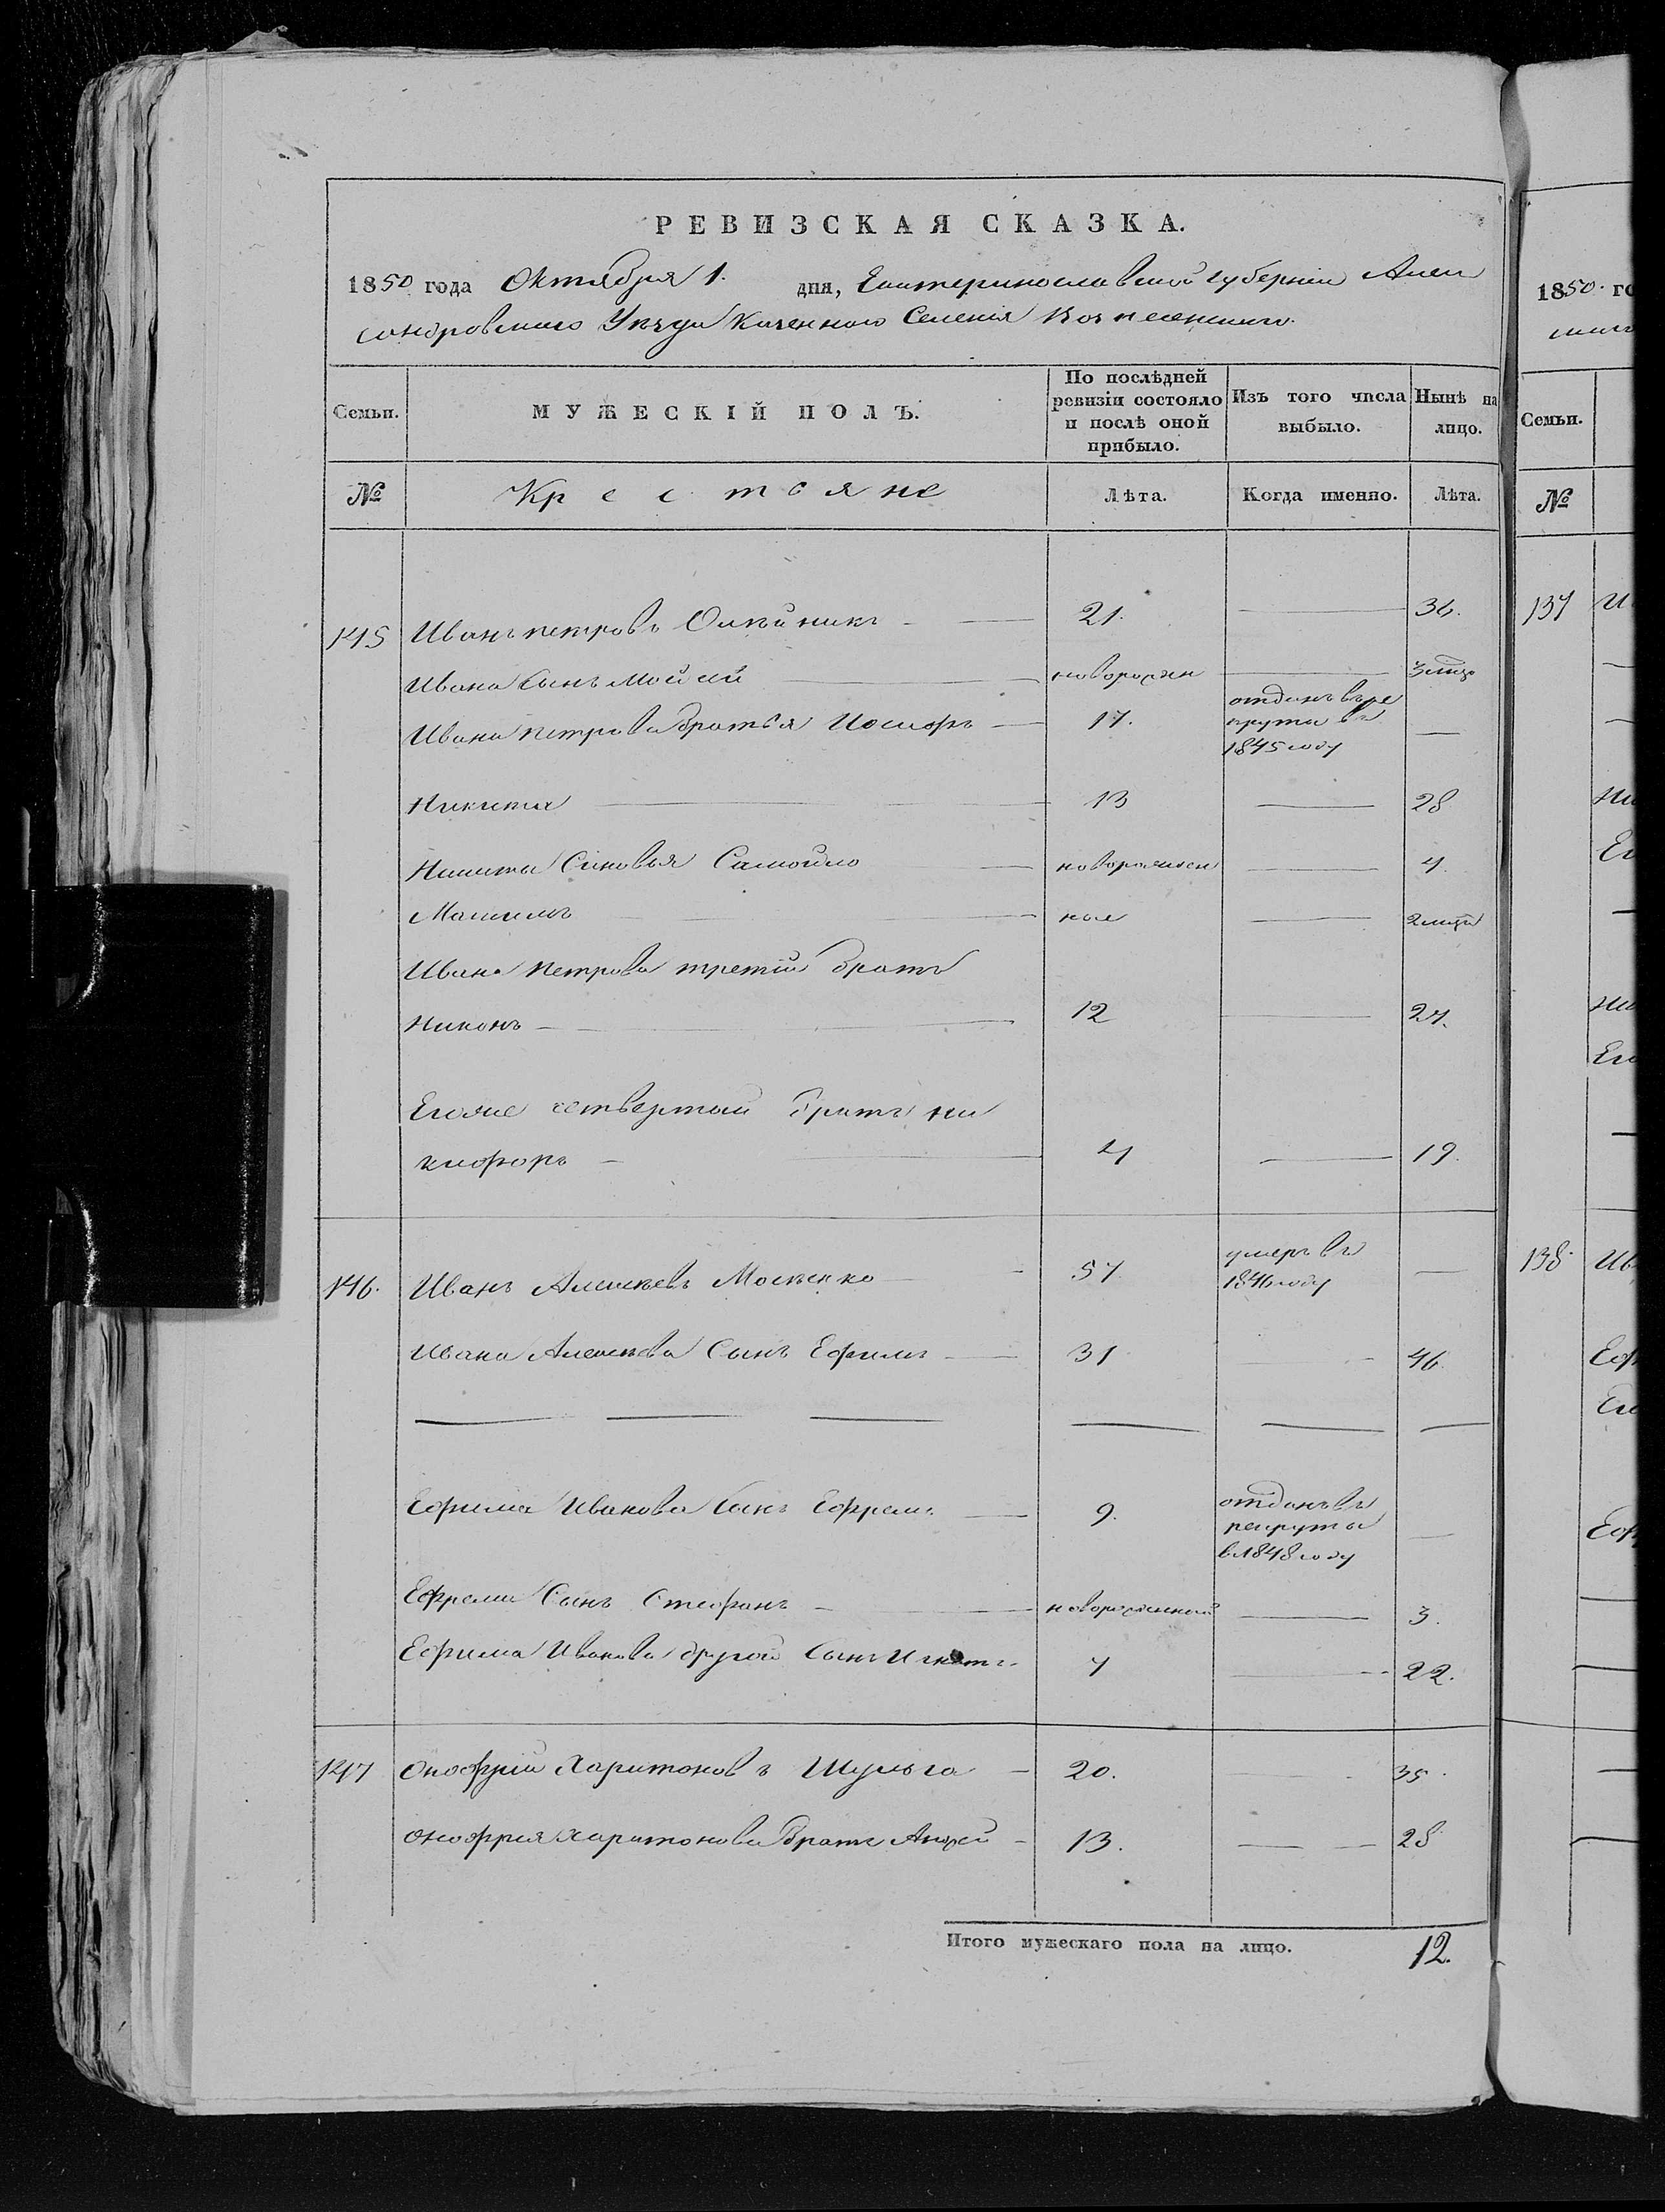 РЕВИЗСКАЯ СКАЗКА.
1850 года Октября 1. дня, Екатеринославской губерніи Алек
сандровскаго Уѣзда Казеннаго Селенія Вознесенскаго.
Семьи. МУЖЕСКІЙ ПОЛЪ. По послѣдней ревизіи состояло и послѣ оной прибыло. Изъ того числа выбыло. Нынѣ на лицо.
№ Крестьяне Лѣта. Когда именно. Лѣта.
145 Иванъ петровъ Олѣйникъ 21. 36.
Ивана Сынъ Мойсей новорожден 3 мца
Ивана петрова братья Иосифъ 17. отданъ въ ре
круты въ
1845 году
Никита 13 28
Никиты Синовья Самойло новорожден 4.
Максимъ ные 2 мца
Ивана петрова третій братъ
Никонъ 12 27.
Егоже четвертый братъ Ни
кифоръ 4 19.
146. Иванъ Алексѣевъ Мосѣенко 57 умеръ въ
1846 году
Ивана Алексѣева Сынъ Ефимъ 31 46.
Ефима Иванова Сынъ Ефремъ 9. отданъ въ
рекруты
в 1848 году
Ефрема Сынъ Стефанъ новорожденный 3.
Ефима Иванова другой Сынъ Игнатъ 7 22.
147 Онофрий Харитоновъ Шульга 20. 35.
Онофрия харитонова братъ Андрей 13. 28
Итого мужескаго пола на лицо. 12.
1850. го
Семьи.
№
137
Ни
Ег
Ни
Его
138. Ив
Еф
Его
Еф